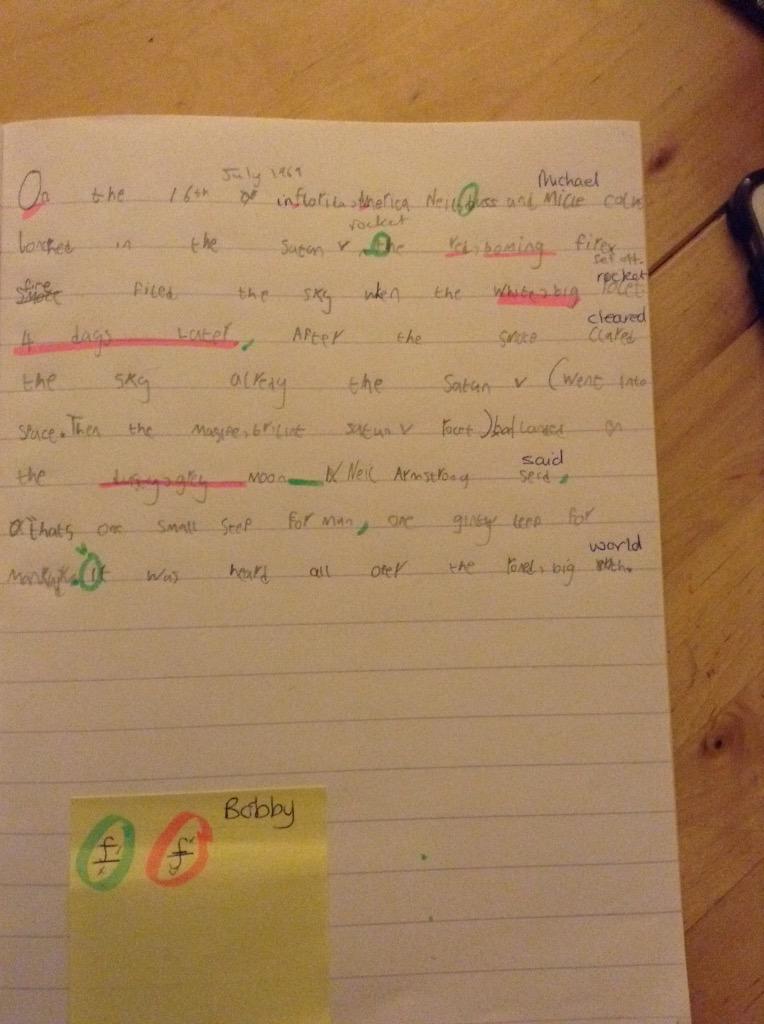 July 1969
On the 16th in florida, America Neil, Buss and Micle
Michael
rocket
lonched in the Satan v. the red, boming firey
set off.
fire filed the sky when the white, big rocet
rocket
4 days Later, After the smoke clared
cleared
the sky alredy the Satun v (went into
space. Then the masive, brilint satun v rocet) had landed on
the dusty, grey moon Neil Armstrong serd,
said
thats one small step for man, one ginty leep for
mankind. it was heard all over the roned, big
world
Bobby
f
f